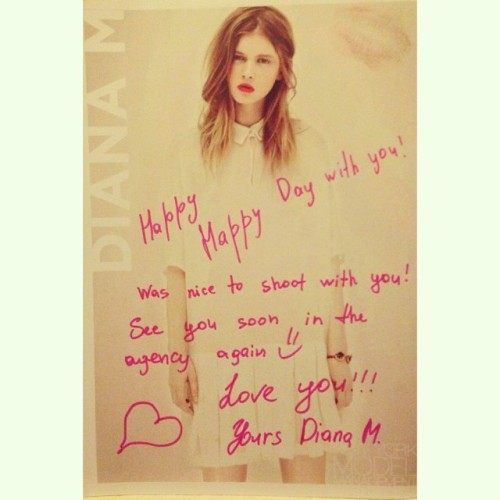 DIANA M
Happy Mappy Day with you!
Was nice to shoot with you!
See you soon in the
agency again
Love you!!!
Yours Diana M.
MODEL
MANAGEMENT